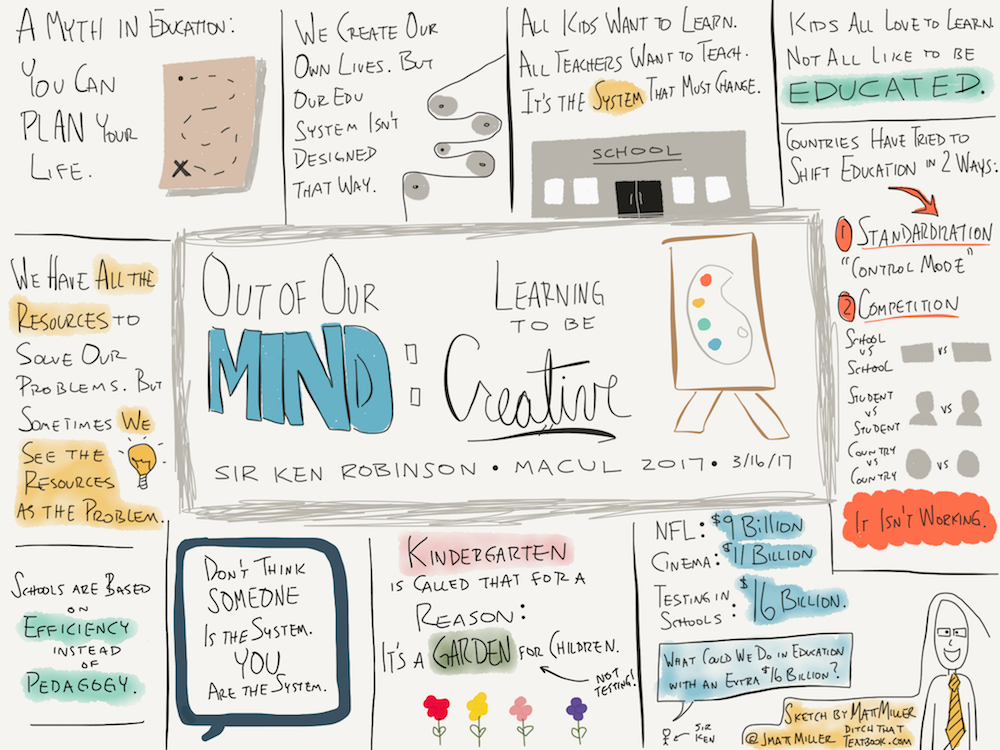 A MYTH IN EDUCATION:
YOU CAN
PLAN YOUR
LIFE.
WE CREATE OUR
OWN LIVES. BUT
OUR EDU
SYSTEM ISN'T
DESIGNED
THAT WAY.
ALL KIDS WANT TO LEARN.
ALL TEACHERS WANT TO TEACH.
IT'S THE SYSTEM THAT MUST CHANGE.
SCHOOL
KIDS ALL LOVE TO LEARN
NOT ALL LIKE TO BE
EDUCATED.
COUNTRIES HAVE TRIED TO
SHIFT EDUCATION IN 2 WAYS:
1 STANDARDIZATION
"CONTROL MODE"
2 COMPETITION
SCHOOL
VS
SCHOOL
VS
STUDENT
VS
STUDENT
VS
COUNTRY
VS
COUNTRY
VS
IT ISN'T WORKING.
WE HAVE ALL THE
RESOURCES TO
SOLVE OUR
PROBLEMS. BUT
SOMETIMES WE
SEE THE
RESOURCES
AS THE PROBLEM.
OUT OF OUR
MIND:
LEARNING
TO BE
Creative
SIR KEN ROBINSON • MACUL 2017 • 3/16/17
SCHOOLS ARE BASED
ON
EFFICIENCY
INSTEAD
OF
PEDAGOGY.
DON'T THINK
SOMEONE
IS THE SYSTEM.
YOU
ARE THE SYSTEM.
KINDERGARTEN
IS CALLED THAT FOR A
REASON:
IT'S A GARDEN FOR CHILDREN.
NOT
TESTING!
NFL: $9 BILLION
CINEMA: $11 BILLION
TESTING IN
SCHOOLS: $16 BILLION.
WHAT COULD WE DO IN EDUCATION
WITH AN EXTRA $16 BILLION?
SIR
KEN
SKETCH BY MATT MILLER
DITCH THAT
@JMATTMILLER TEXTBOOK.COM